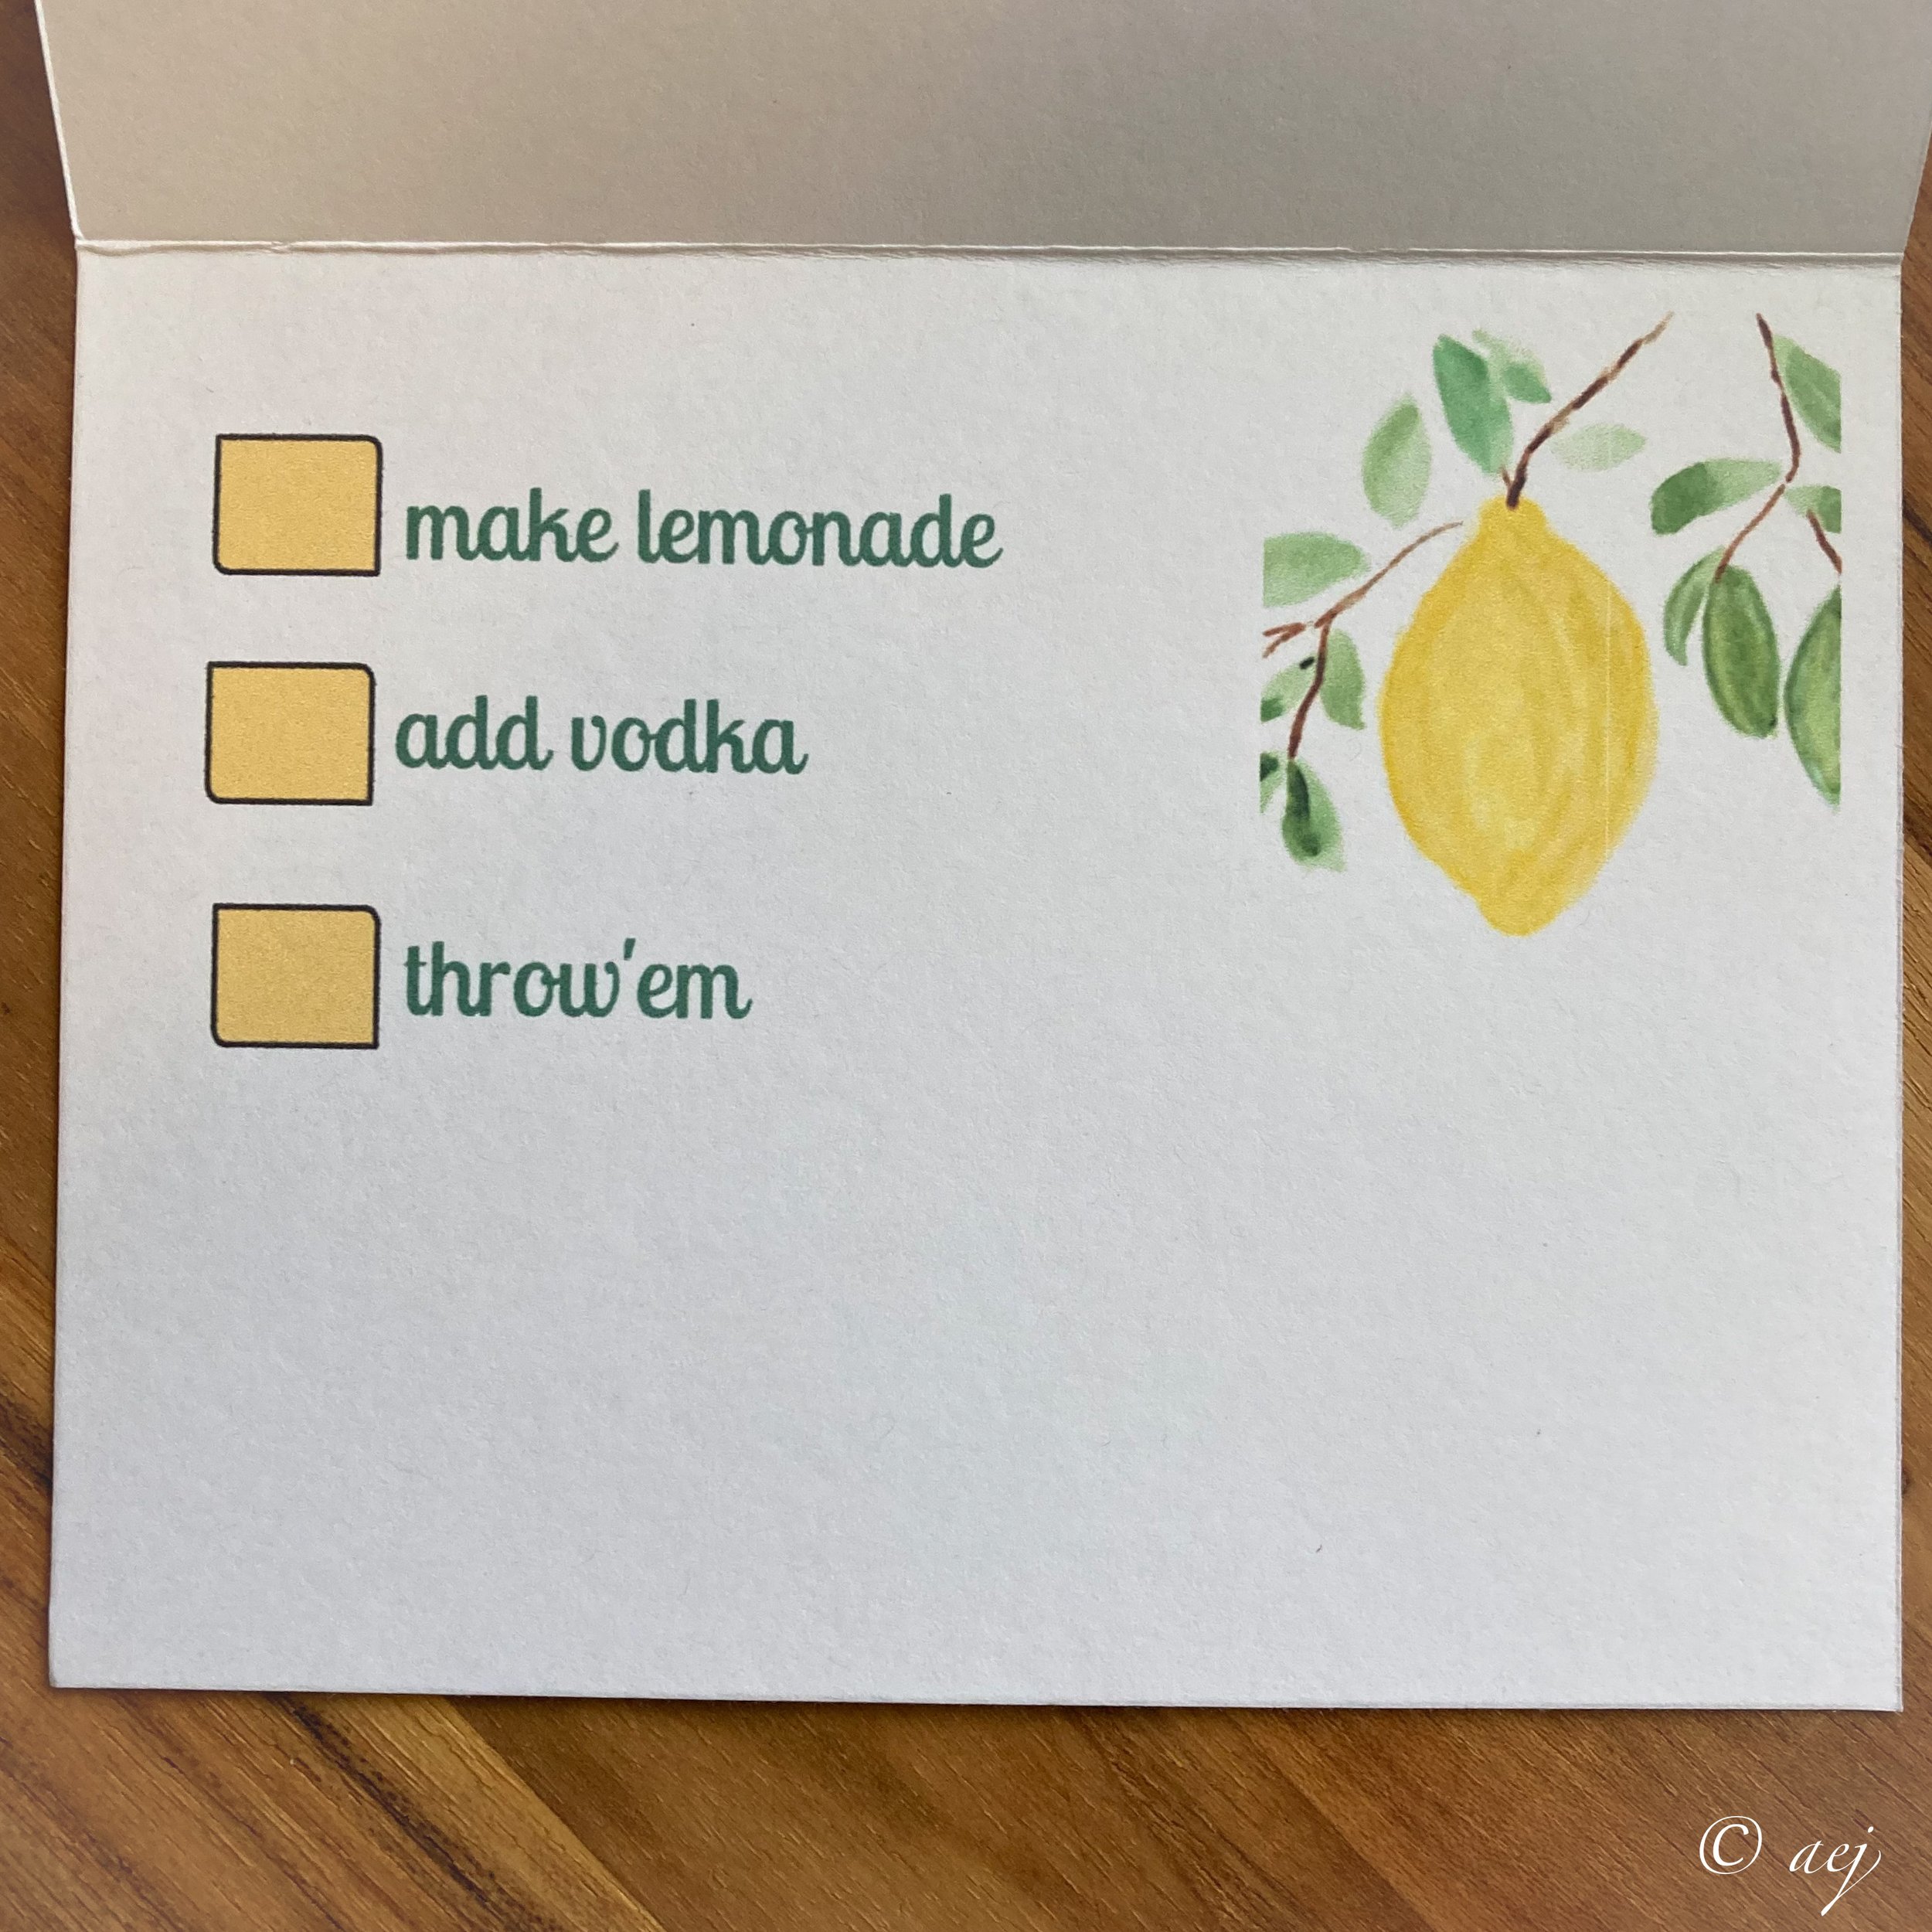 make lemonade
add vodka
throw'em
© aej